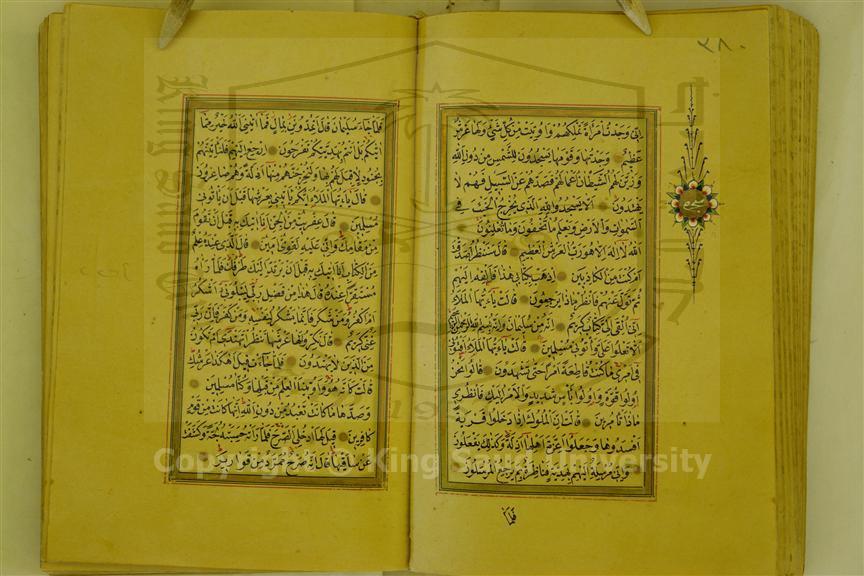 ٣٨٠
إني وجدت امرأة تملكهم وأوتيت من كل شيء ولها عرش
عظيم وجدتها وقومها يسجدون للشمس من دون الله
وزين لهم الشيطان أعمالهم فصدهم عن السبيل فهم لا
يهتدون ألا يسجدوا لله الذي يخرج الخبء في
السموات والأرض ويعلم ما تخفون وما تعلنون
الله لا إله إلا هو رب العرش العظيم قال سننظر أصدقت
أم كنت من الكاذبين اذهب بكتابي هذا فألقه إليهم
ثم تول عنهم فانظر ماذا يرجعون قالت يا أيها الملأ
إني ألقي إلي كتاب كريم إنه من سليمان وإنه بسم الله الرحمن الرحيم
ألا تعلوا علي وأتوني مسلمين قالت يا أيها الملأ أفتوني
في أمري ما كنت قاطعة أمرا حتى تشهدون قالوا نحن
أولوا قوة وأولوا بأس شديد والأمر إليك فانظري
ماذا تأمرين قالت إن الملوك إذا دخلوا قرية
أفسدوها وجعلوا أعزة أهلها أذلة وكذلك يفعلون
وإني مرسلة إليهم بهدية فناظرة بم يرجع المرسلون
فلما
سجده
فلما جاء سليمان قال أتمدونن بمال فما آتاني الله خير مما
آتاكم بل أنتم بهديتكم تفرحون ارجع إليهم فلنأتينهم
بجنود لا قبل لهم بها ولنخرجنهم منها أذلة وهم صاغرون
قال يا أيها الملأ أيكم يأتيني بعرشها قبل أن يأتوني
مسلمين قال عفريت من الجن أنا آتيك به قبل أن تقوم
من مقامك وإني عليه لقوي أمين قال الذي عنده علم
من الكتاب أنا آتيك به قبل أن يرتد إليك طرفك فلما رآه
مستقرا عنده قال هذا من فضل ربي ليبلوني أأشكر
أم أكفر ومن شكر فإنما يشكر لنفسه ومن كفر فإن ربي
غني كريم قال نكروا لها عرشها ننظر أتهتدي أم تكون
من الذين لا يهتدون فلما جاءت قيل أهكذا عرشك
قالت كأنه هو وأوتينا العلم من قبلها وكنا مسلمين
وصدها ما كانت تعبد من دون الله إنها كانت من قوم
كافرين قيل لها ادخلي الصرح فلما رأته حسبته لجة وكشفت
عن ساقيها قال إنه صرح ممرد من قوارير
Copyright © King Saud University